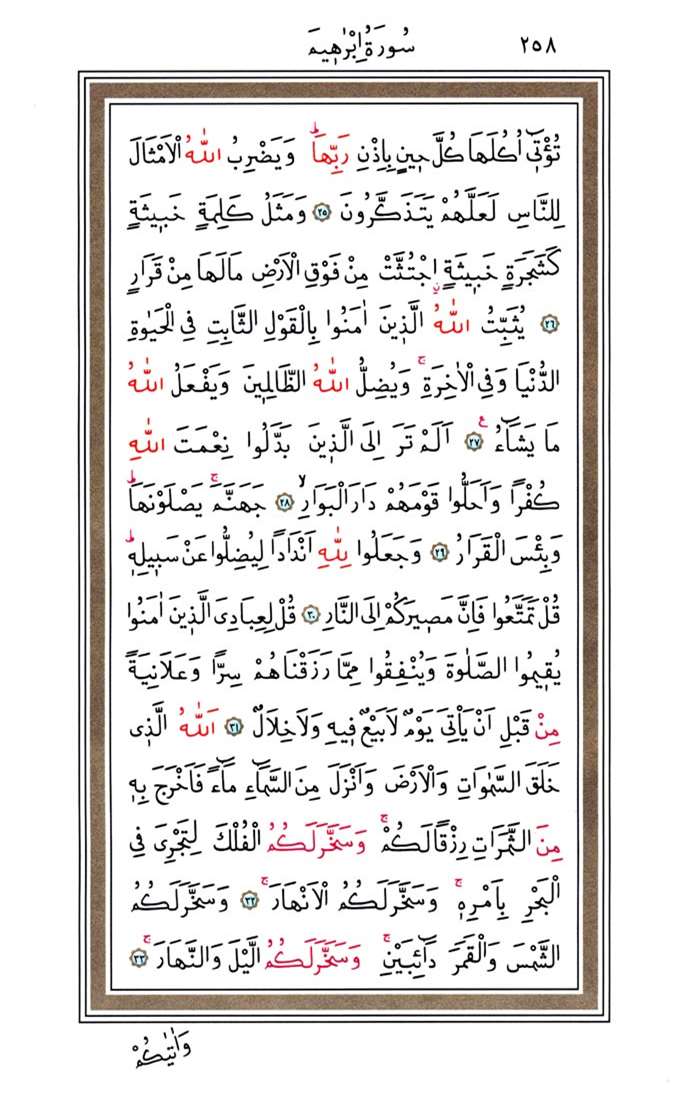 ٢٥٨ سُورَةُ اِبْرٰهٖيمَ
تُؤْتٖٓي اُكُلَهَا كُلَّ حٖينٍ بِاِذْنِ رَبِّهَاۜ وَيَضْرِبُ اللّٰهُ الْاَمْثَالَ
لِلنَّاسِ لَعَلَّهُمْ يَتَذَكَّرُونَ ﴿٢٥﴾ وَمَثَلُ كَلِمَةٍ خَبٖيثَةٍ
كَشَجَرَةٍ خَبٖيثَةٍ اجْتُثَّتْ مِنْ فَوْقِ الْاَرْضِ مَالَهَا مِنْ قَرَارٍ
﴿٢٦﴾ يُثَبِّتُ اللّٰهُ الَّذٖينَ اٰمَنُوا بِالْقَوْلِ الثَّابِتِ فِي الْحَيٰوةِ
الدُّنْيَا وَفِي الْاٰخِرَةِۚ وَيُضِلُّ اللّٰهُ الظَّالِمٖينَ وَيَفْعَلُ اللّٰهُ
مَا يَشَٓاءُ ﴿٢٧﴾ اَلَمْ تَرَ اِلَى الَّذٖينَ بَدَّلُوا نِعْمَتَ اللّٰهِ
كُفْرًا وَاَحَلُّوا قَوْمَهُمْ دَارَ الْبَوَارِۙ ﴿٢٨﴾ جَهَنَّمَۚ يَصْلَوْنَهَاۜ
وَبِئْسَ الْقَرَارُ ﴿٢٩﴾ وَجَعَلُوا لِلّٰهِ اَنْدَادًا لِيُضِلُّوا عَنْ سَبٖيلِهٖۜ
قُلْ تَمَتَّعُوا فَاِنَّ مَصٖيرَكُمْ اِلَى النَّارِ ﴿٣٠﴾ قُلْ لِعِبَادِيَ الَّذٖينَ اٰمَنُوا
يُقٖيمُوا الصَّلٰوةَ وَيُنْفِقُوا مِمَّا رَزَقْنَاهُمْ سِرًّا وَعَلَانِيَةً
مِنْ قَبْلِ اَنْ يَأْتِيَ يَوْمٌ لَا بَيْعٌ فٖيهِ وَلَا خِلَالٌ ﴿٣١﴾ اَللّٰهُ الَّذٖي
خَلَقَ السَّمٰوَاتِ وَالْاَرْضَ وَاَنْزَلَ مِنَ السَّمَٓاءِ مَٓاءً فَاَخْرَجَ بِهٖ
مِنَ الثَّمَرَاتِ رِزْقًا لَكُمْۚ وَسَخَّرَ لَكُمُ الْفُلْكَ لِتَجْرِيَ فِي
الْبَحْرِ بِاَمْرِهٖۚ وَسَخَّرَ لَكُمُ الْاَنْهَارَۚ ﴿٣٢﴾ وَسَخَّرَ لَكُمُ
الشَّمْسَ وَالْقَمَرَ دَٓائِبَيْنِۚ وَسَخَّرَ لَكُمُ الَّيْلَ وَالنَّهَارَۚ ﴿٣٣﴾
وَاٰتٰيكُمْ